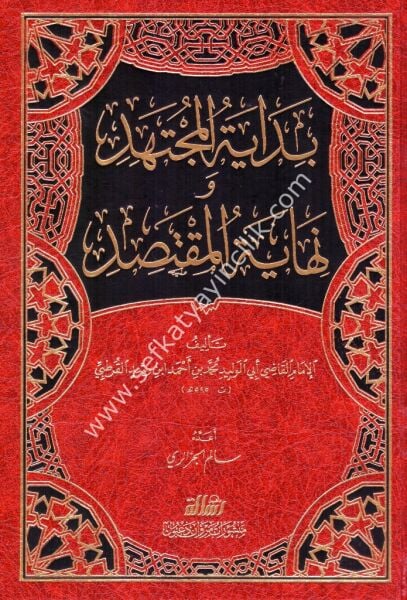 بداية المجتهد
و
نهاية المقتصد
تأليف
الإمام القاضي أبي الوليد محمد بن أحمد ابن رشد القرطبي
(ت ٥٩٥هـ)
أعتنى به
سالم الجزائري
الرسالة
www.sefkatyayincilik.com